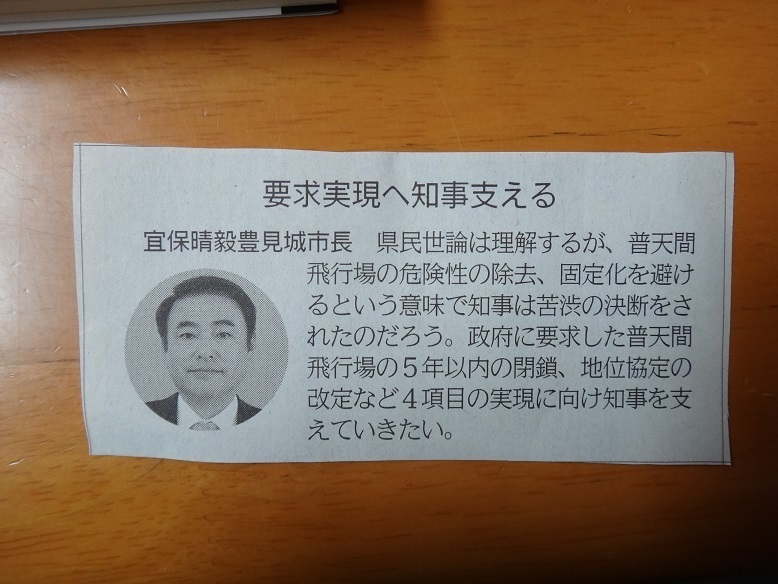 要求実現へ知事支える
宜保晴毅豊見城市長　県民世論は理解するが、普天間
飛行場の危険性の除去、固定化を避け
るという意味で知事は苦渋の決断をさ
れたのだろう。政府に要求した普天間
飛行場の５年以内の閉鎖、地位協定の
改定など４項目の実現に向け知事を支
えていきたい。